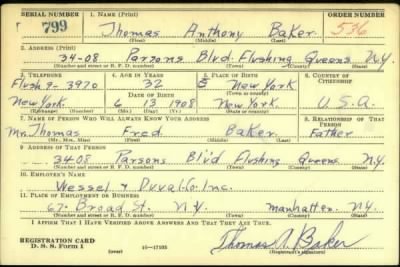 SERIAL NUMBER 1. NAME (Print) ORDER NUMBER
799 Thomas Anthony Baker 536
(First) (Middle) (Last)
2. ADDRESS (Print)
34-08 Parsons Blvd. Flushing Queens N.Y.
(Number and street or R. F. D. number) (Town) (County) (State)
3. TELEPHONE 4. AGE IN YEARS 5. PLACE OF BIRTH 6. COUNTRY OF CITIZENSHIP
Flush 9-3970 32 New York
DATE OF BIRTH (Town or county)
New York. 6 13 1908 New York U.S.A.
(Mo.) (Day) (Yr.) (State or country)
7. NAME OF PERSON WHO WILL ALWAYS KNOW YOUR ADDRESS 8. RELATIONSHIP OF THAT PERSON
Mr. Thomas Fred Baker Father
(Mr., Mrs., Miss) (First) (Middle) (Last)
9. ADDRESS OF THAT PERSON
34-08 Parsons Bl'vd Flushing Queens N.Y.
(Number and street or R. F. D. number) (Town) (County) (State)
10. EMPLOYER'S NAME
Wessel & Duval Co Inc.
11. PLACE OF EMPLOYMENT OR BUSINESS
67 Broad St. N.Y. Manhatten N.Y.
(Number and street or R. F. D. number) (Town) (County) (State)
I AFFIRM THAT I HAVE VERIFIED ABOVE ANSWERS AND THAT THEY ARE TRUE.
REGISTRATION CARD Thomas A. Baker
D. S. S. Form 1 (over) 16-17105 (Registrant's signature)